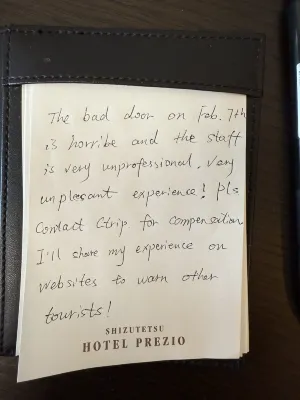 The bad door on Feb. 7th
is horribe and the staff
is very unprofessional. Very
unpleasant experience! Pls
contact Ctrip for compensation
I'll share my experience on
websites to warn other
tourists!
SHIZUTETSU
HOTEL PREZIO